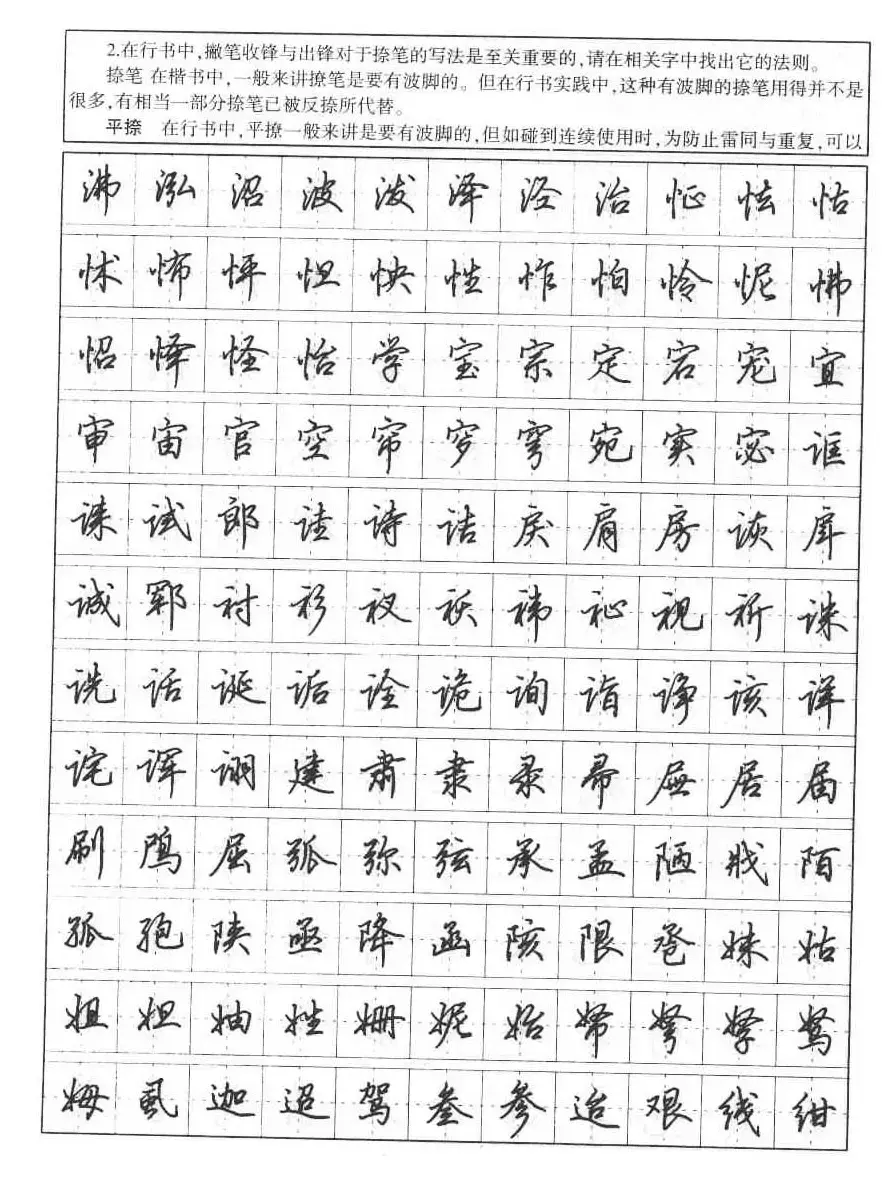 2.在行书中,撇笔收锋与出锋对于捺笔的写法是至关重要的,请在相关字中找出它的法则。
捺笔 在楷书中,一般来讲撩笔是要有波脚的。但在行书实践中,这种有波脚的捺笔用得并不是
很多,有相当一部分捺笔已被反捺所代替。
平捺 在行书中,平撩一般来讲是要有波脚的,但如碰到连续使用时,为防止雷同与重复,可以
沸 泓 沼 波 泼 泽 泾 治 怔 怯 怙
怵 怖 怦 怛 怏 性 怍 怕 怜 怩 怫
怊 怿 怪 怡 学 宝 宗 定 宕 宠 宜
审 宙 官 空 帘 穸 穹 宛 实 宓 诓
诔 试 郎 诖 诗 诘 戾 肩 房 诙 戽
诚 郓 衬 衫 衩 祆 祎 祉 视 祈 诛
诜 话 诞 诟 诠 诡 询 诣 诤 该 详
诧 诨 诩 建 肃 隶 录 帚 屉 居 届
刷 鸤 屈 弧 弥 弦 承 孟 陋 戕 陌
孤 孢 陕 亟 降 函 陔 限 卺 妹 姑
姐 妲 妯 姓 姗 妮 始 帑 弩 孥 驽
姆 虱 迦 迢 驾 叁 参 迨 艰 线 绀